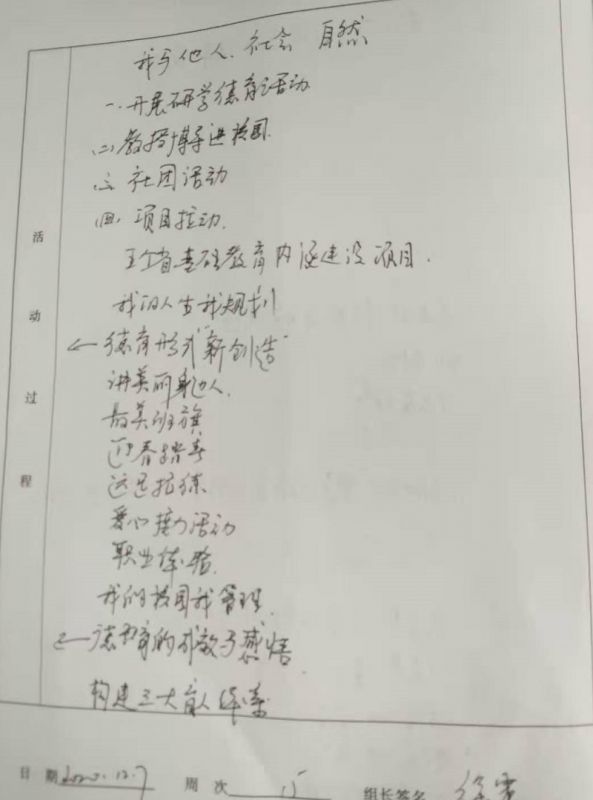 我与他人、社会 自然
一、开展研学德育活动
(二) 教授博导进校园.
(三) 社团活动
(四) 项目拉动.
五个省基础教育内涵建设项目.
我的人生我规划
←德育形式"新创造"
讲美丽身边人.
最美班旗
迎春踏青
远足拉练
爱心接力活动
职业体验.
我的校园我管理.
←德育的成效与感悟
构建三大育人体系
活动过程
日期2020.12.7 周次 15 组长签名